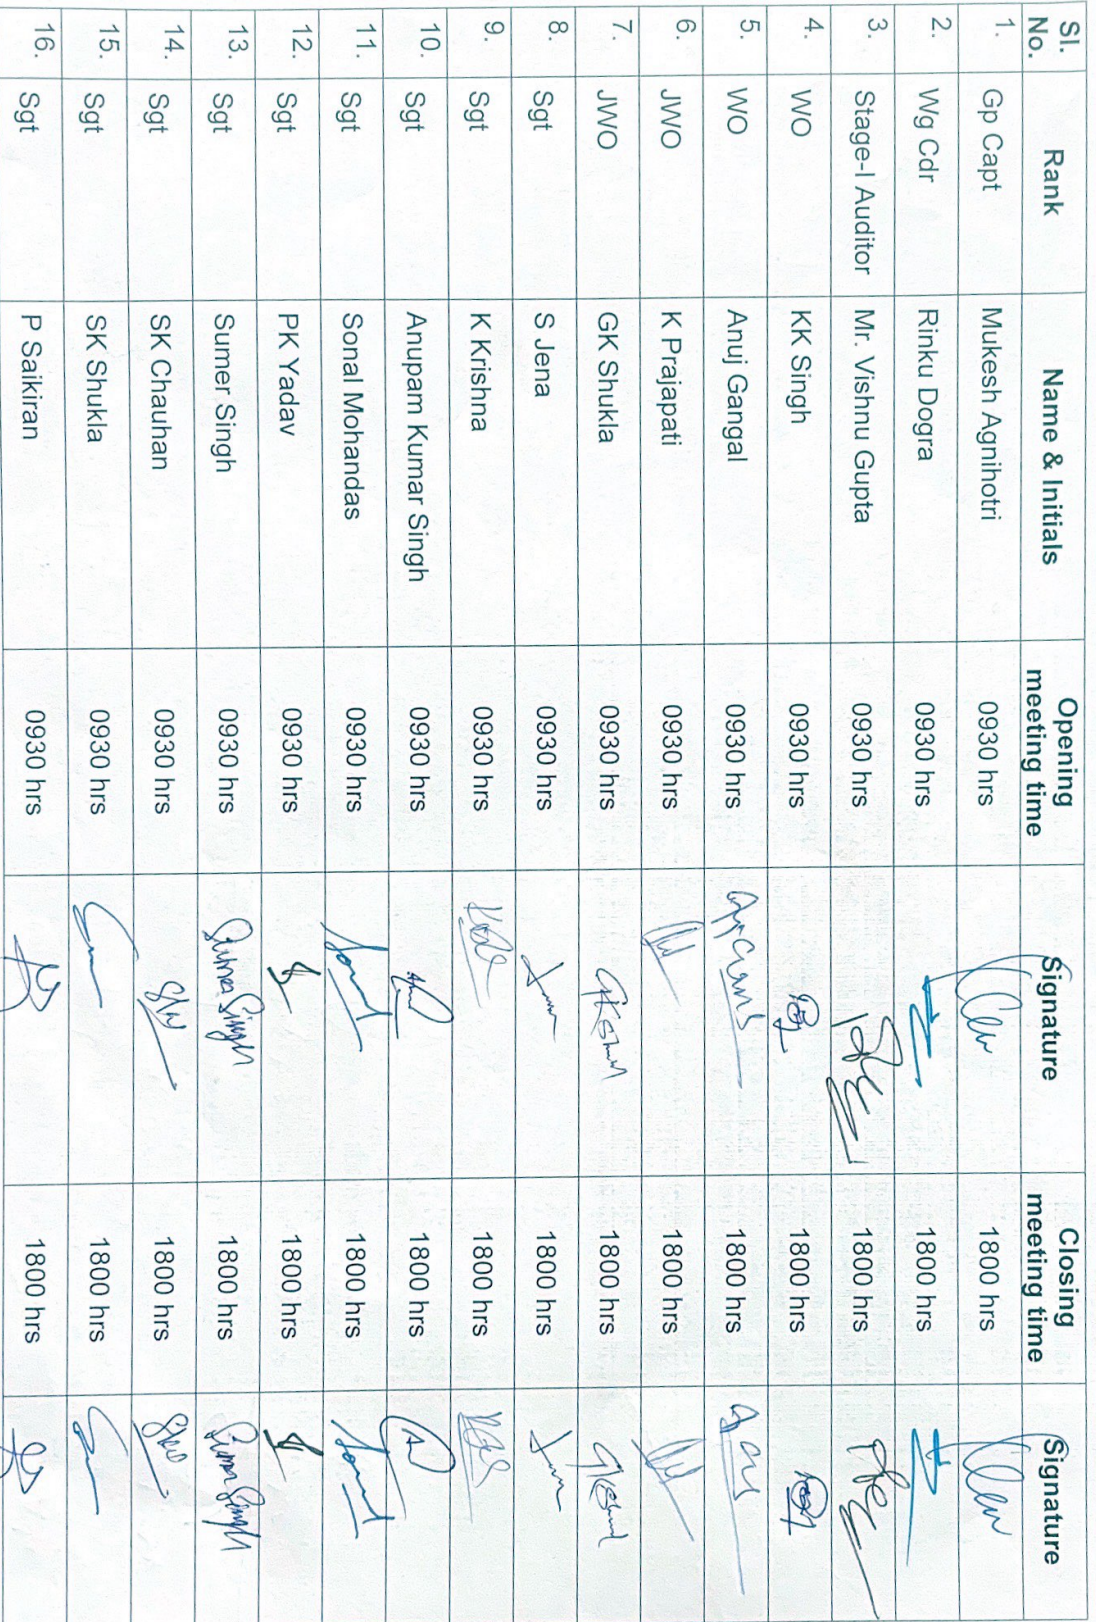 Sl. No. Rank Name & Initials Opening meeting time Signature Closing meeting time Signature
1. Gp Capt Mukesh Agnihotri 0930 hrs 1800 hrs
2. Wg Cdr Rinku Dogra 0930 hrs 1800 hrs
3. Stage-I Auditor Mr. Vishnu Gupta 0930 hrs 1800 hrs
4. WO KK Singh 0930 hrs 1800 hrs
5. WO Anuj Gangal 0930 hrs 1800 hrs
6. JWO K Prajapati 0930 hrs 1800 hrs
7. JWO GK Shukla 0930 hrs 1800 hrs
8. Sgt S Jena 0930 hrs 1800 hrs
9. Sgt K Krishna 0930 hrs 1800 hrs
10. Sgt Anupam Kumar Singh 0930 hrs 1800 hrs
11. Sgt Sonal Mohandas 0930 hrs 1800 hrs
12. Sgt PK Yadav 0930 hrs 1800 hrs
13. Sgt Sumer Singh 0930 hrs 1800 hrs
14. Sgt SK Chauhan 0930 hrs 1800 hrs
15. Sgt SK Shukla 0930 hrs 1800 hrs
16. Sgt P Saikiran 0930 hrs 1800 hrs